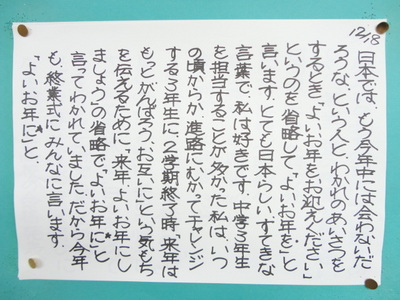 12/18
日本では、もう今年中には会わないだ
ろうな、という人と、わかれのあいさつを
するとき「よいお年をお迎えください」
というのを省略して「よいお年を」と
言います。とても日本らしい、すてきな
言葉で、私は好きです。中学3年生
を担当することが多かった私は、いつ
の頃からか、進路にむかってチャレンジ
する3年生に、2学期終了時、「来年は
もっとがんばろう、お互いに」という気もち
を伝えるために「来年、よいお年にし
ましょう」の省略で「よいお年に」と
言ってわかれていました。だから今年
も、終業式に、みんなに言います。
「よいお年に」と、